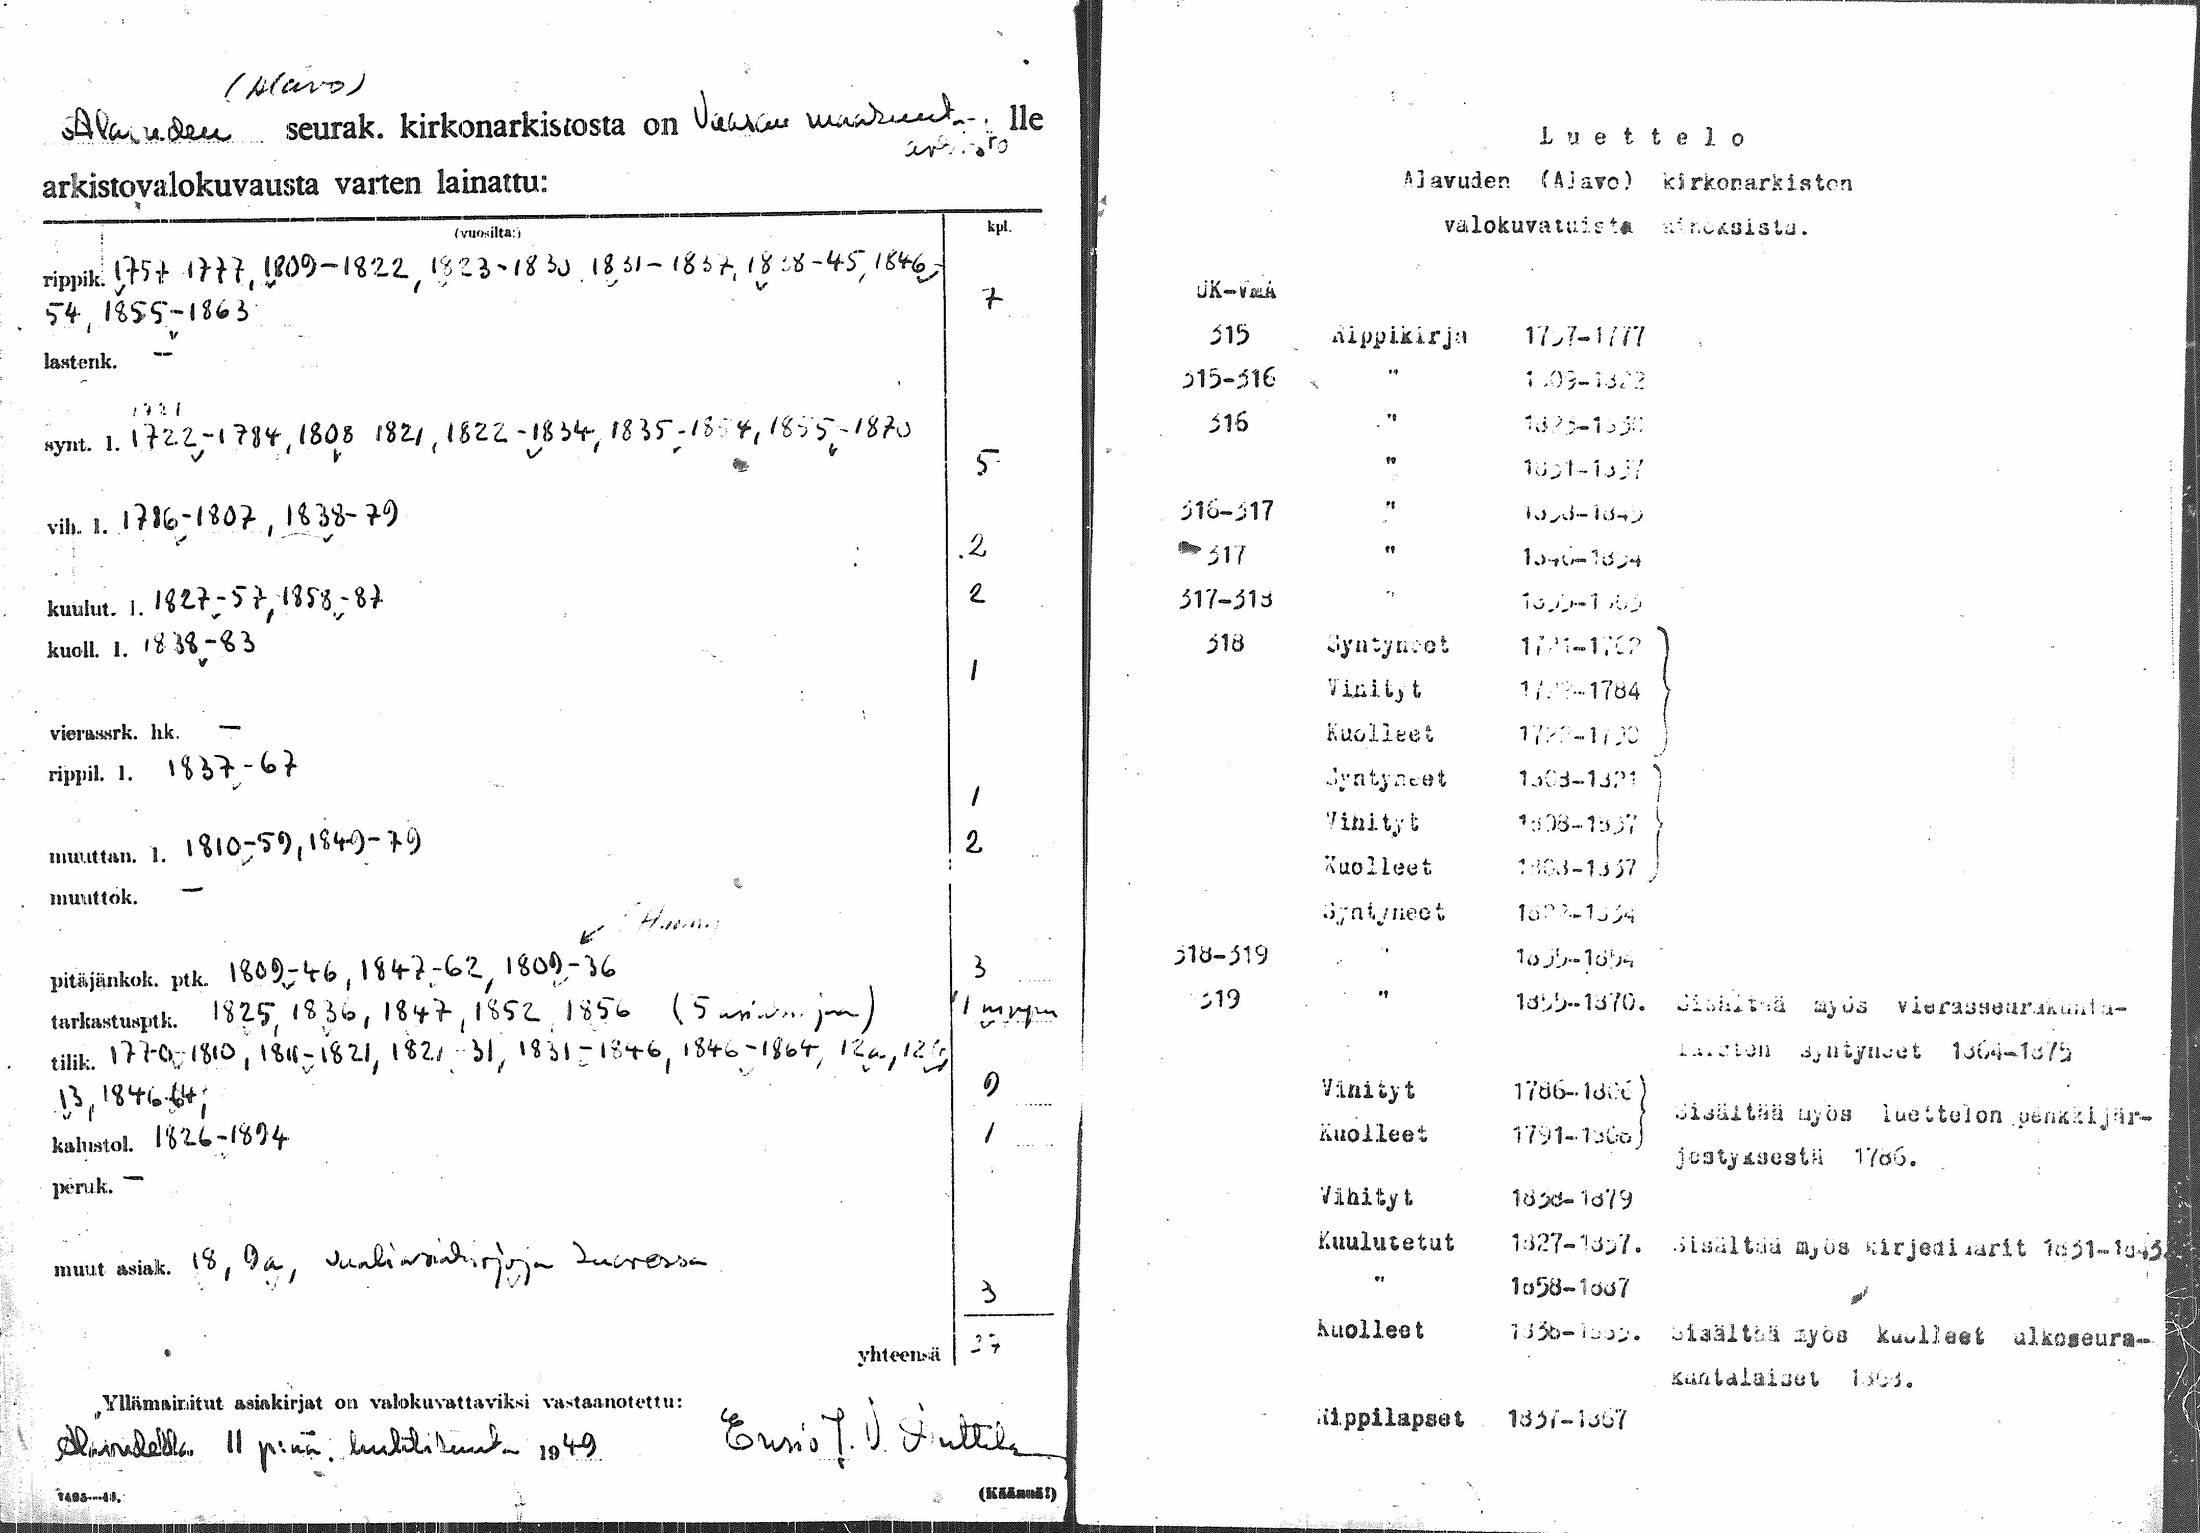 (Alavo)
Alavuden seurak. kirkonarkistosta on Vaasan maakunta- lle
arkisto
arkistovalokuvausta varten lainattu:
(vuosilta:) kpl.
rippik. 1757 1777, 1809-1822, 1823-1830 1831-1837, 1838-45, 1846-
54, 1855-1863 7
lastenk. –
1721
synt. l. 1722-1784, 1808 1821, 1822-1834, 1835-1854, 1855-1870
5
vih. l. 1786-1807, 1838-79
2
kuulut. l. 1827-57, 1858-87 2
kuoll. l. 1838-83
1
vierassrk. hk. –
rippil. l. 1837-67
1
muuttan. l. 1810-59, 1849-79 2
muuttok. –
pitäjänkok. ptk. 1809-46, 1847-62, 1809-36 3
tarkastusptk. 1825, 1836, 1847, 1852 1856 (5 asiakirjaa) 1 nippu
tilik. 1770-1810, 1811-1821, 1821-31, 1831-1846, 1846-1864, 12a, 12b,
13, 1846-64; 9
kalustol. 1826-1894 1
peruk. –
muut asiak. 18, 9a,
3
yhteensä 37
Yllämainitut asiakirjat on valokuvattaviksi vastaanotettu:
Alavudella 11 p:nä huhtikuuta 1949 Ensio J. V.
(Käännä!)
Luettelo
Alavuden (Alavo) kirkonarkiston
valokuvatuista aineksista.
UK-VmA
315 Rippikirja 1757-1777
315-316 " 1809-1822
316 " 1823-1830
" 1831-1837
316-317 " 1838-1845
317 " 1846-1854
317-318 " 1855-1863
318 Syntyneet 1721-1762
Vihityt 1722-1784
Kuolleet
Syntyneet 1808-1821
Vihityt 1808-1837
Kuolleet 1808-1837
Syntyneet 1822-1834
318-319 " 1835-1854
319 " 1855-1870. Sisältää myös vierasseurakunta-
laisten syntyneet 1864-1875
Vihityt 1786-1806
Kuolleet 1791-1806 Sisältää myös luettelon penkkijär-
jestyksestä 1786.
Vihityt 1838-1879
Kuulutetut 1827-1857. Sisältää myös kirjediaarit 1831-1843.
" 1858-1887
Kuolleet 1838-1883. Sisältää myös kuolleet ulkoseura-
kuntalaiset 1868.
Rippilapset 1837-1867